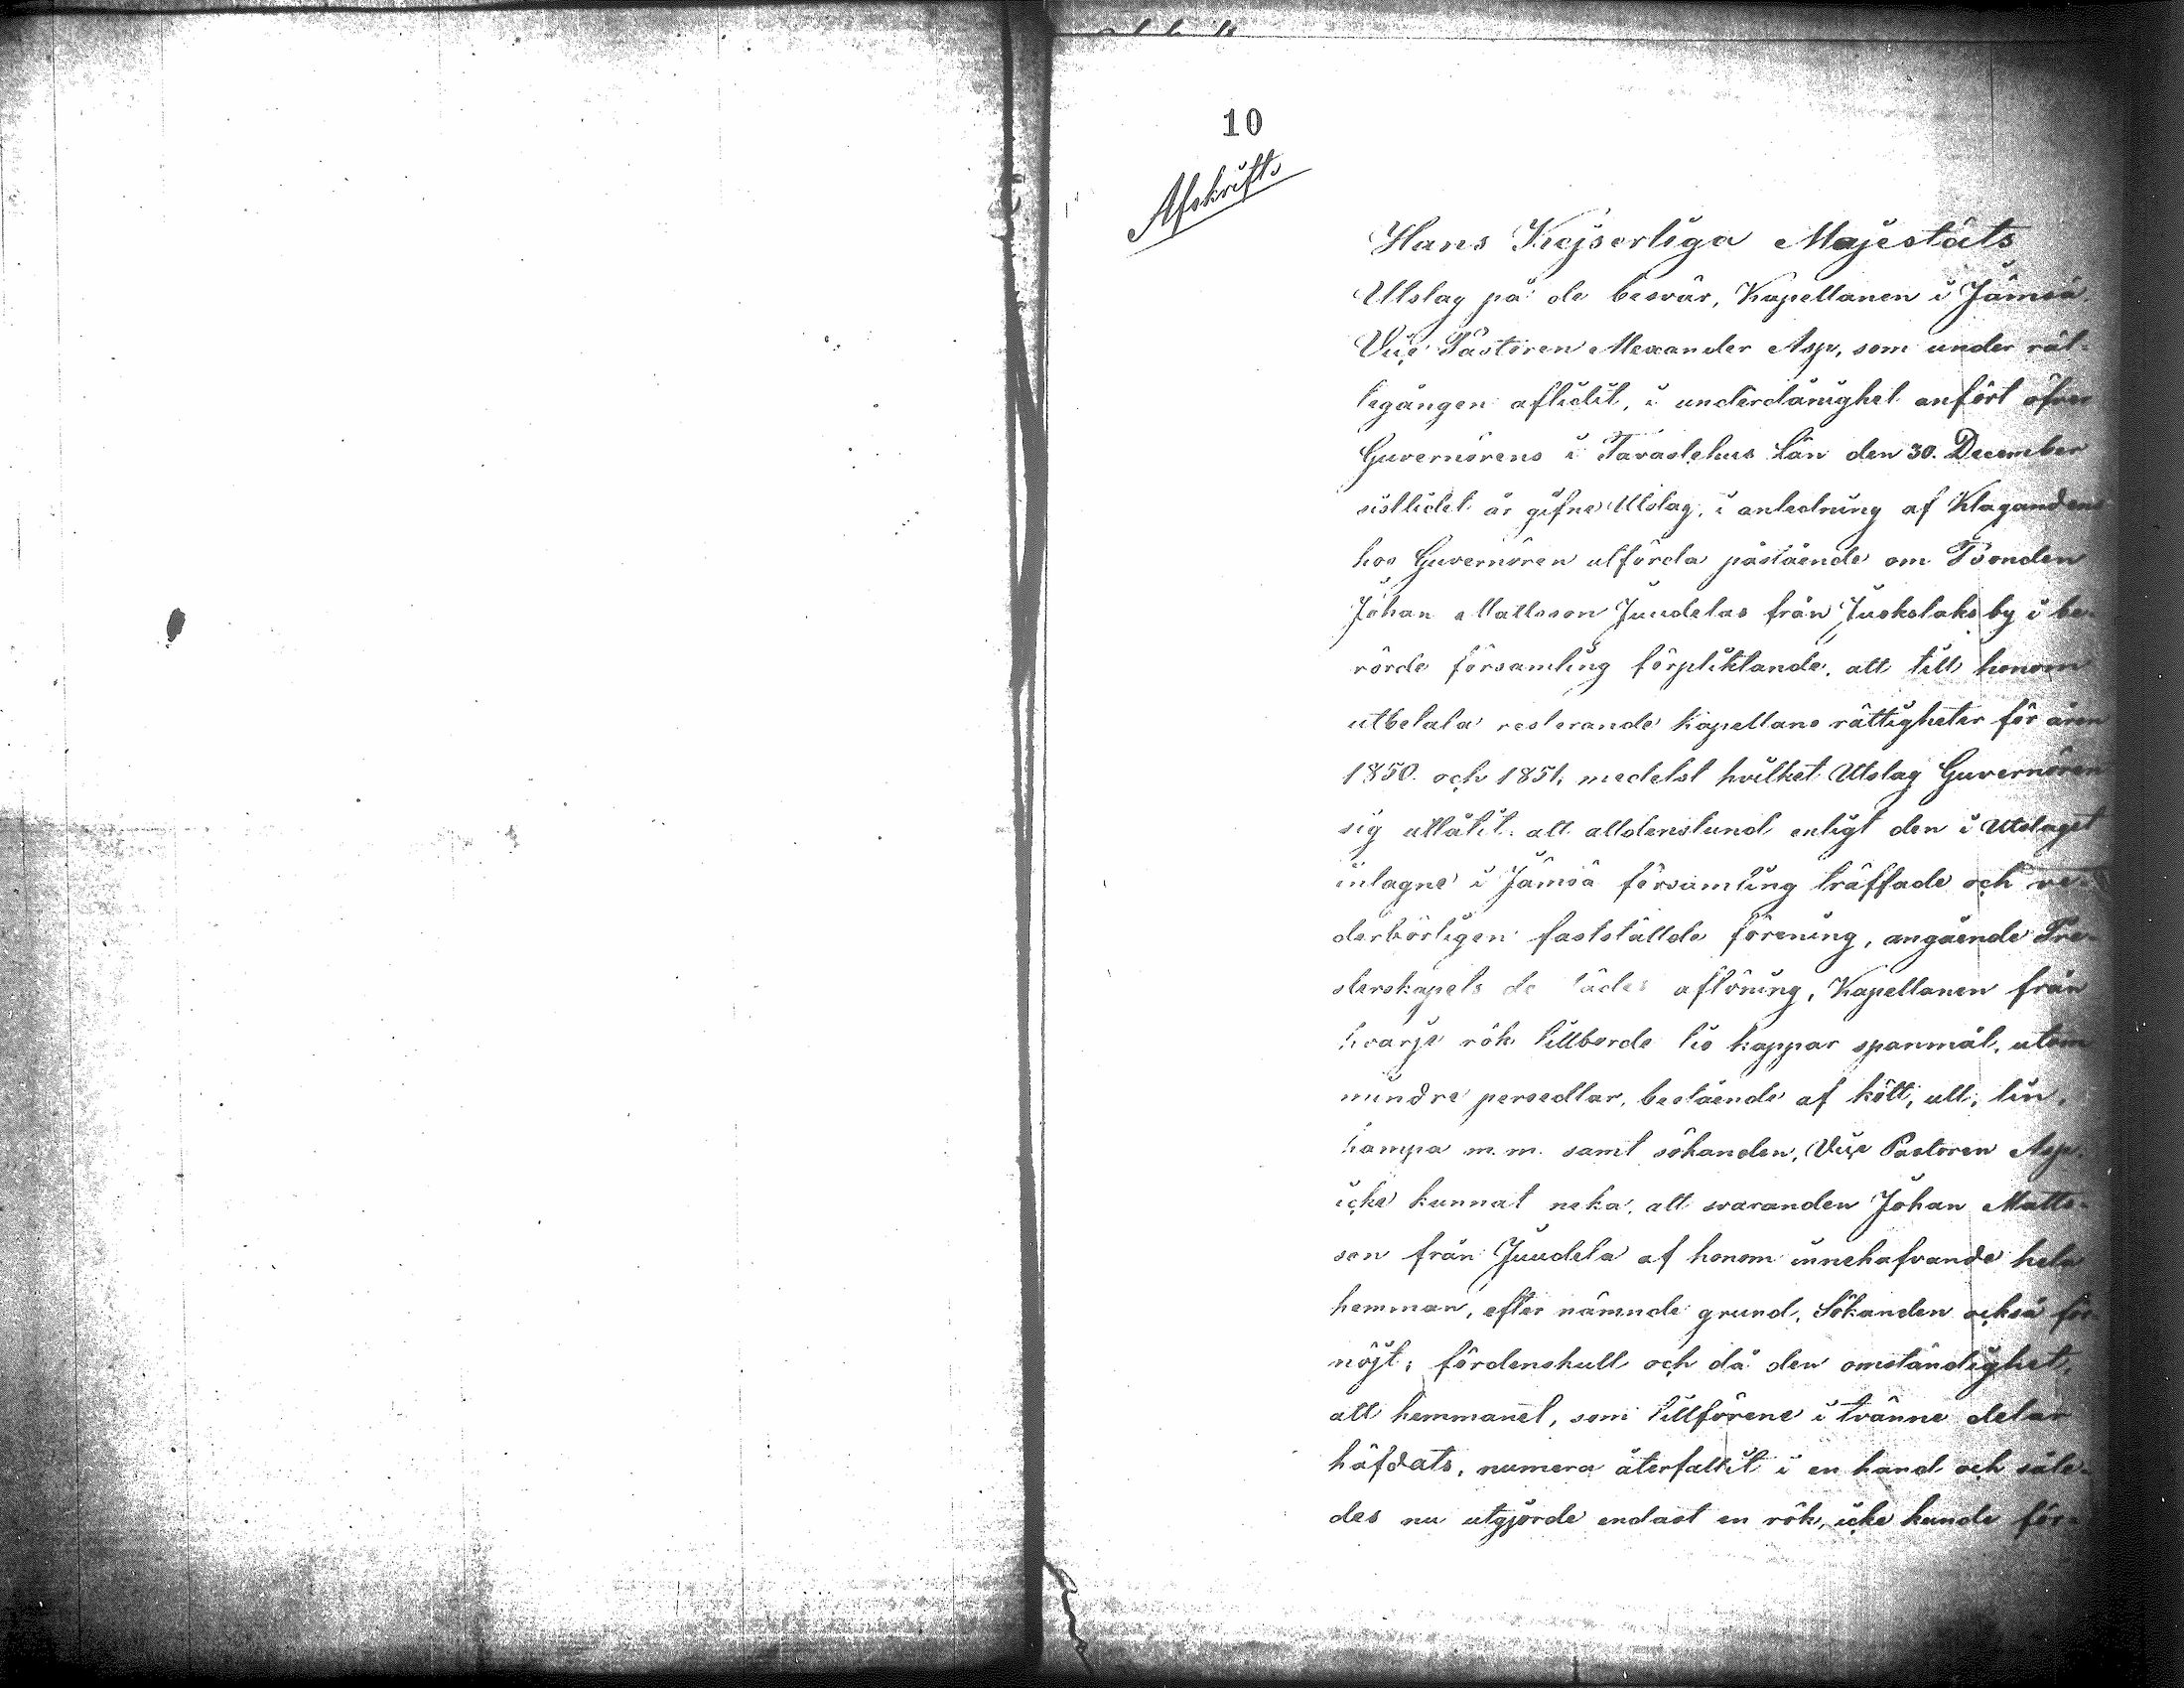 10
Afskrift
Hans Kejserliga Majestäts
Utslag på de besvär, Kapellanen i Jämsä
Vice Pastoren Alexander Asp, som under rät-
tegången aflidit, i underdånighet anfört öfver
Guvernörens i Tavastehus Län den 30. December
sistlidet år gifne Utslag, i anledning af Klagandens
hos Guvernören utförda påstående om Bonden
Johan Mattsson Juudelas från Juokslaks by i be-
rörde församling förpliktande, att till honom
utbetala resterande kapellans rättigheter för åren
1850. och 1851, medelst hvilket Utslag Guvernören
sig utlåtit: att alldenstund enligt den i Utslaget
intagne i Jämsä församling träffade och ve-
derbörligen fastställde förening, angående Pre-
sterskapets de aflöning, Kapellanen från
hvarje rök tillborde tio kappar spanmål, utom
mindre persedlar, bestående af kött, ull, lin,
hampa m. m. samt sökanden, Vice Pastoren Asp,
icke kunnat neka, att svaranden Johan Matts-
son från Juudela af honom innehafvande hela
hemman, efter nämnde grund, Sökanden också för-
nöjt; fördenskull och då den omständighet,
att hemmanet, som tillförene i tvänne delar
häfdats, numera återfallit i en hand och såle-
des nu utgjorde endast en rök, icke kunde för-